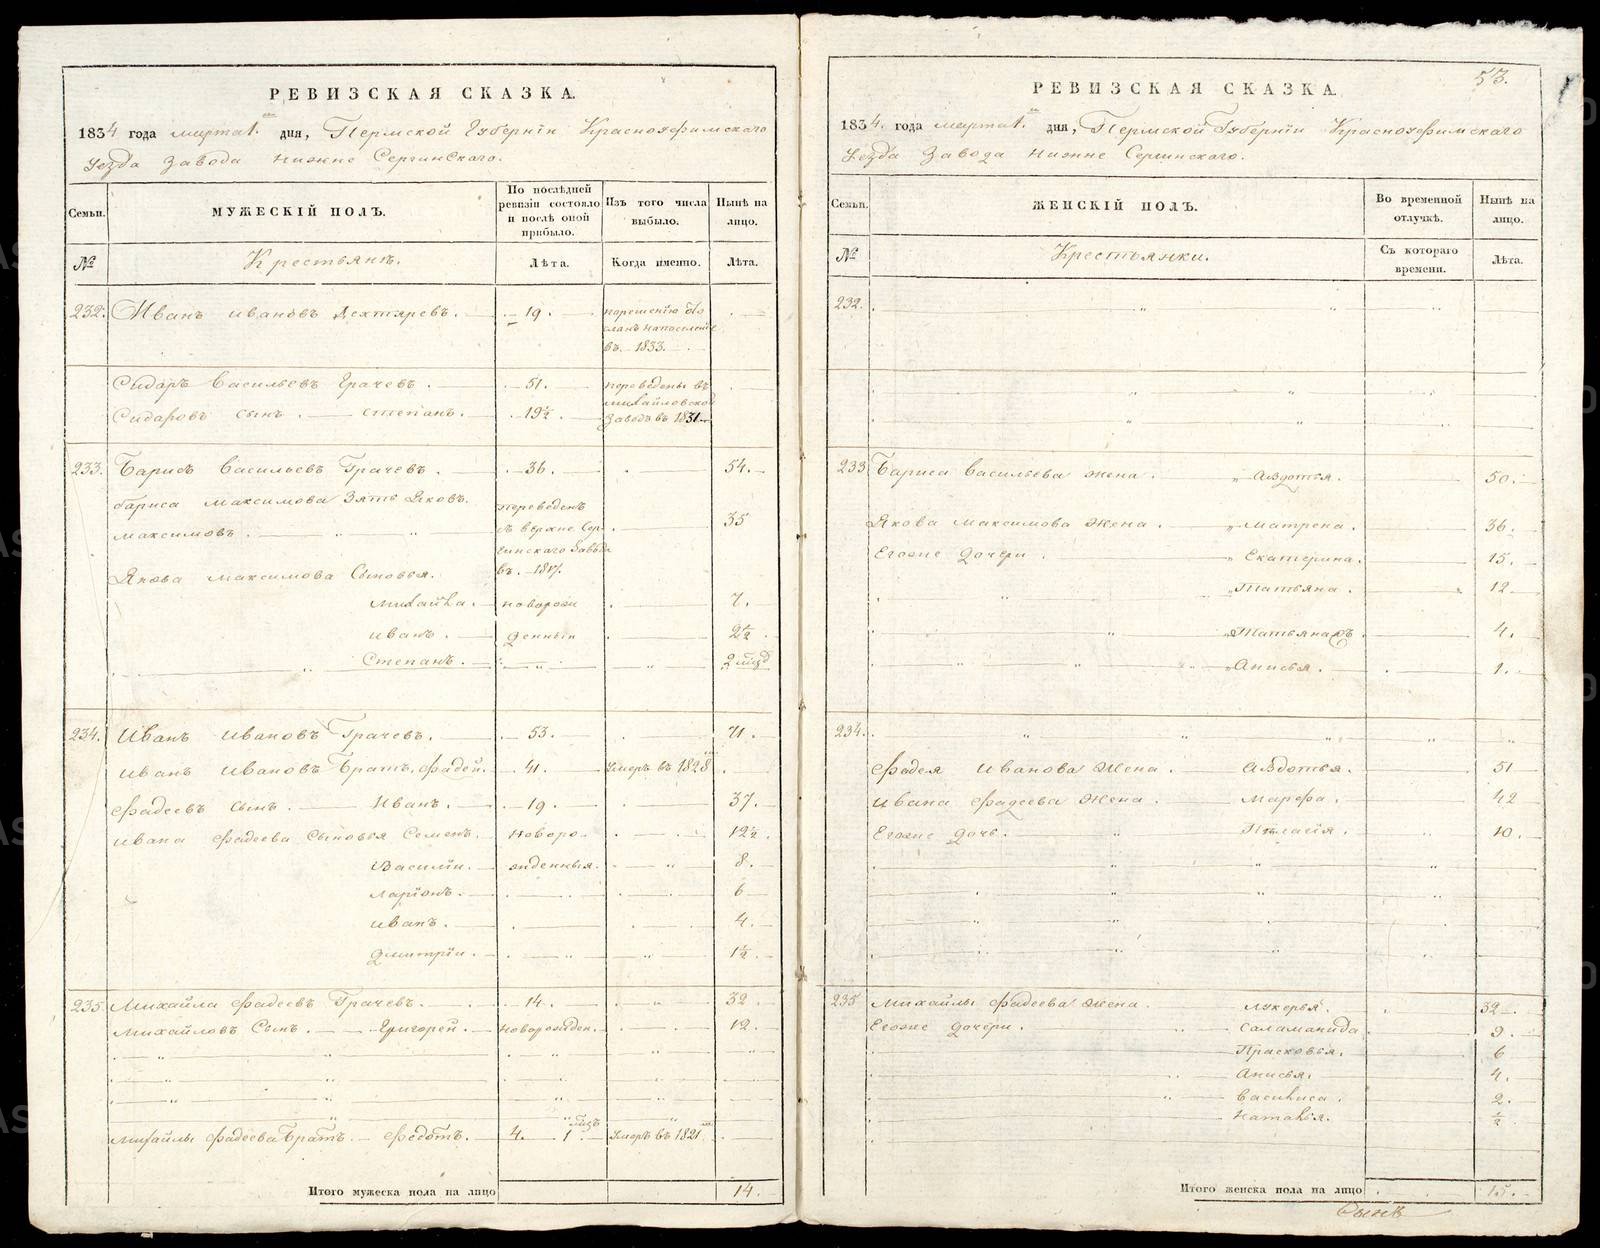 РЕВИЗСКАЯ СКАЗКА.
1834 года марта 1. дня, Пермской Губернiи Красноуфимскаго
Уезда Завода Нижне Сергинскаго.
Семьи.
МУЖЕСКIЙ ПОЛЪ.
По послѣдней ревизiи состояло и послѣ оной прибыло.
Изъ того числа выбыло.
Нынѣ на лицо.
№
Крестьянъ.
Лѣта.
Когда именно.
Лѣта.
232. Иванъ Ивановъ Дехтяревъ. 19.
въ 1833.
Сидаръ Васильевъ Грачевъ. 51. переведены въ
Сидаровъ сынъ. Степанъ. 19½. Михайловской
Заводъ въ 1831
233. Барисъ Васильевъ Грачевъ. 36. 54.
Бариса Максимова Зять Яковъ. переведенъ
Максимовъ. 35
въ 1817.
Якова Максимова Сыновья.
Михайла. новорож 7.
Иванъ. денныи 2½.
Степанъ.
234. Иванъ Ивановъ Грачевъ. 53. 71.
Иванъ Ивановъ Братъ, Фадей. 41. Умеръ въ 1828
Фадеевъ сынъ. Иванъ. 19. 37.
Ивана Фадеева Сыновья Семенъ. Новоро 12½.
Василiи. жденныя. 8.
Ларiонъ. 6
Иванъ. 4.
Дмитрiи. 1½.
235. Михайла Фадеевъ Грачевъ. 14. 32.
Михайловъ Сынъ. Григорей. Новорожден. 12.
Михайлы Фадеева Братъ. Федотъ. 4. 1. Умеръ въ 1821
Итого мужеска пола на лицо 14.
53.
РЕВИЗСКАЯ СКАЗКА.
1834. года марта 1. дня, Пермской Губернiи Красноуфимскаго
Уезда Завода Нижне Сергинскаго.
Семьи.
ЖЕНСКIЙ ПОЛЪ.
Во временной отлучкѣ.
Нынѣ на лицо.
№
Крестьянки.
Съ котораго времени.
Лѣта.
232.
233 Бариса Васильева жена. Авдотья. 50.
Якова Максимова жена. Матрена. 36.
Егоже дочери. Екатерина. 15.
Татьяна. 12
Татьяна 4.
Анисья. 1.
234.
Фадея Иванова жена. Авдотья. 51
Ивана Фадеева жена. Марфа. 42
Егоже дочь. Пелагiя. 10.
235 Михайлы Фадеева жена. Лукерья. 32
Егоже дочери. Саламанида 9.
Прасковья. 6
Анисья. 4.
Васильиса. 2.
Наталья. ½
Итого женска пола на лицо 15.